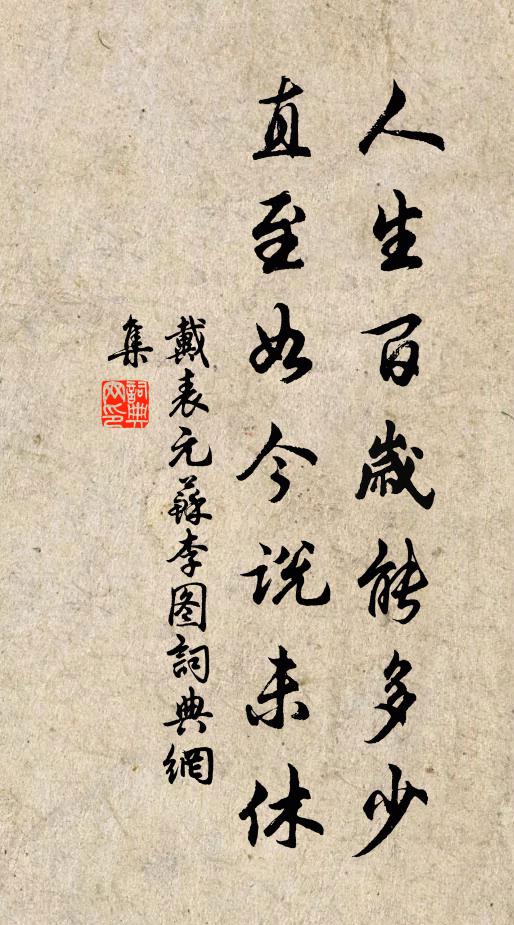 人生百歲能多少
直至如今説未休
戴表元蘇李图詞典網
集
詞典網印